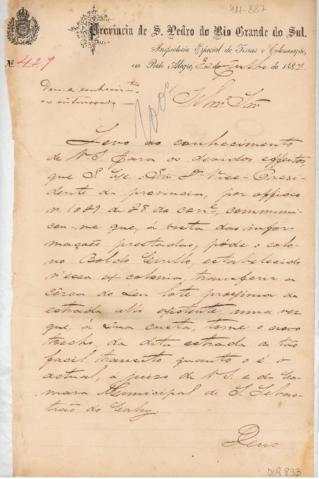 411-887
Provincia de S. Pedro do Rio Grande do Sul.
Inspectoria Especial de Terras e Colonisação,
em Porto Alegre, de de 1887
Nº 427
Illmo Snr
Levo ao conhecimento
de V. S. para os devidos effeitos
que S. Ex. Snr Dr. Vice-Presi-
dente da provincia, por officio
nº 1089 de 28 do corre, communi-
cou-me que, á vista das infor-
mações prestadas, póde o colo-
no estabelecido
nessa ex colonia, transferir a
cêrca do seu lote proximo da
estrada ali existente uma vez
que, á sua custa, torne o novo
trecho da dita estrada de tão
facil transito quanto o é o
actual, a juizo de V. S. e da Ca-
mara Municipal de S. Sebas-
tião do Cahy.
Deus